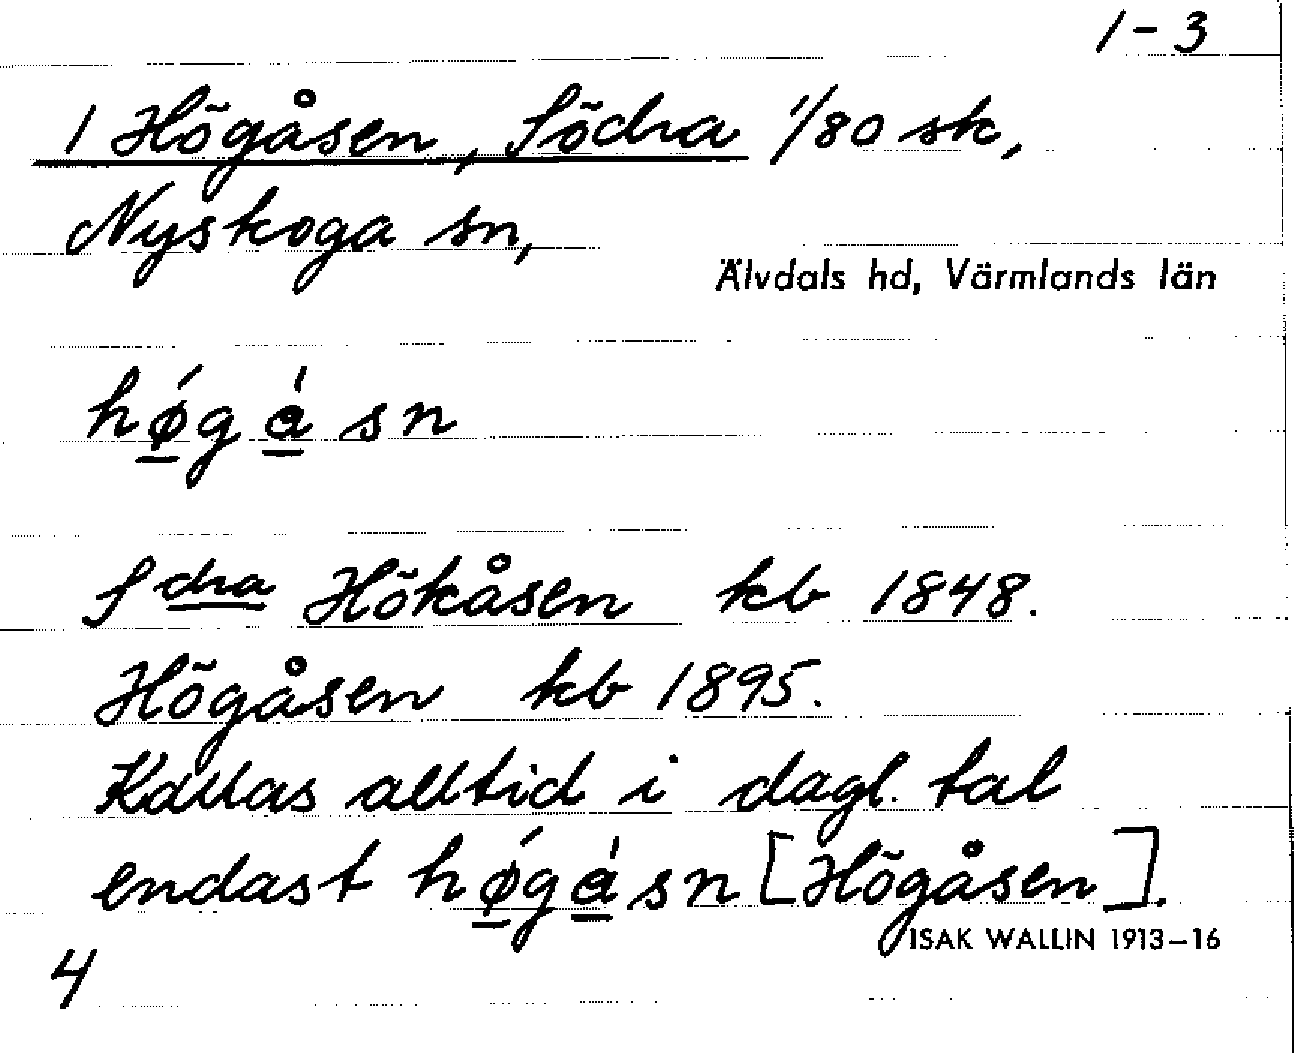 1-3
1 Högåsen, Södra 1/80 sk,
Nyskoga sn,
Älvdals hd, Värmlands län
hǿ̲gà̲sn
Sdra Hökåsen kb 1848.
Högåsen kb 1895.
Kallas alltid i dagl. tal
endast hǿ̲gà̲sn [Högåsen].
ISAK WALLIN 1913-16
4